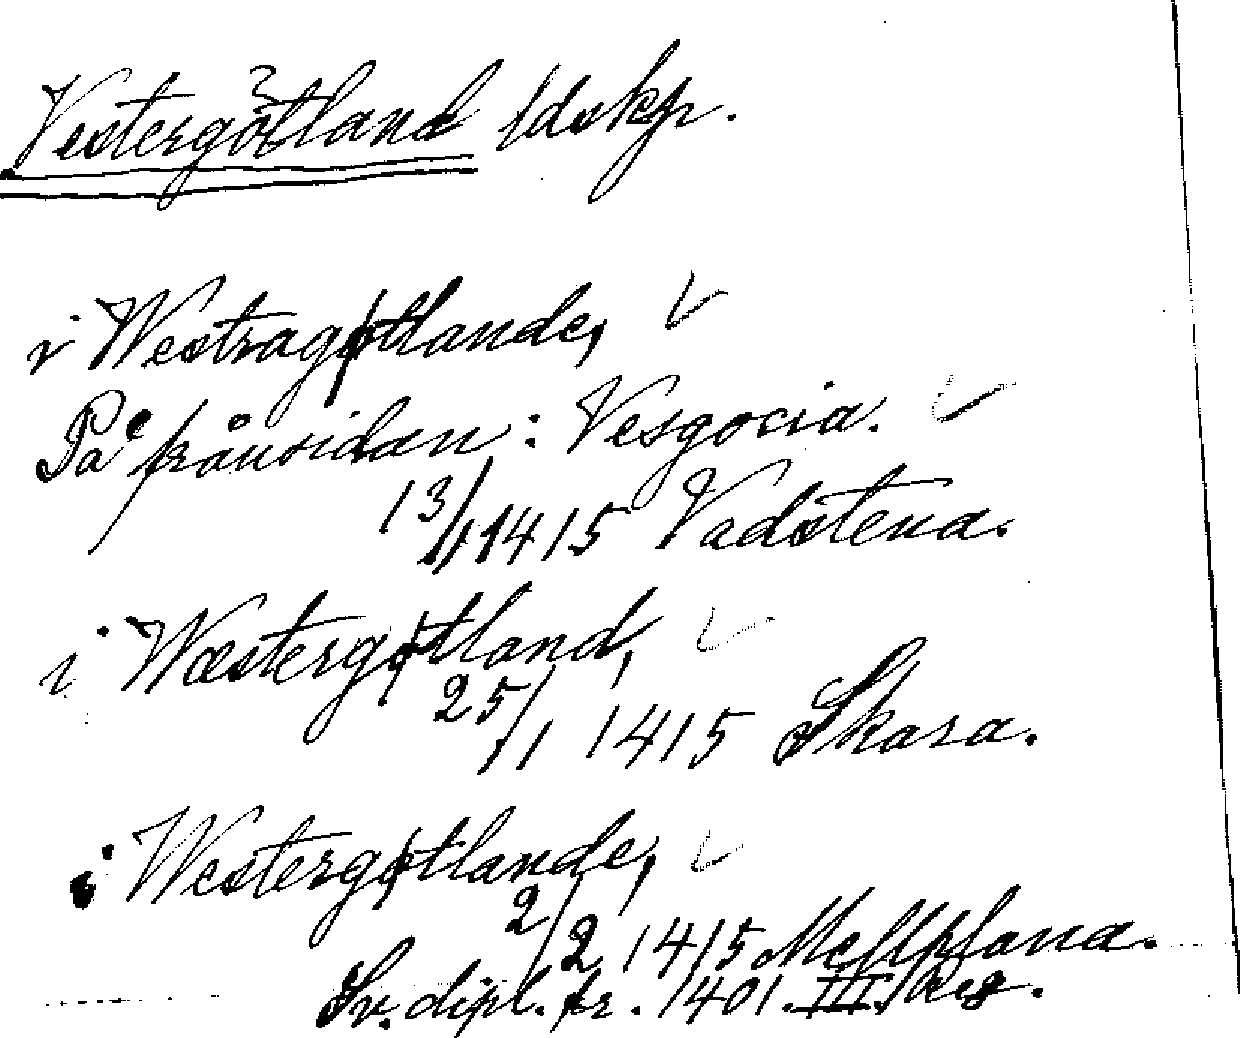 Vestergötland ldskp.
i Westragøtlande,
På frånsidan: Vesgocia.
13/1 1415 Vadstena.
i Wæstergøtland,
25/1 1415 Skara.
i Westergøtlande,
2/2 1415
Sv. dipl. fr. 1401. III. Reg.